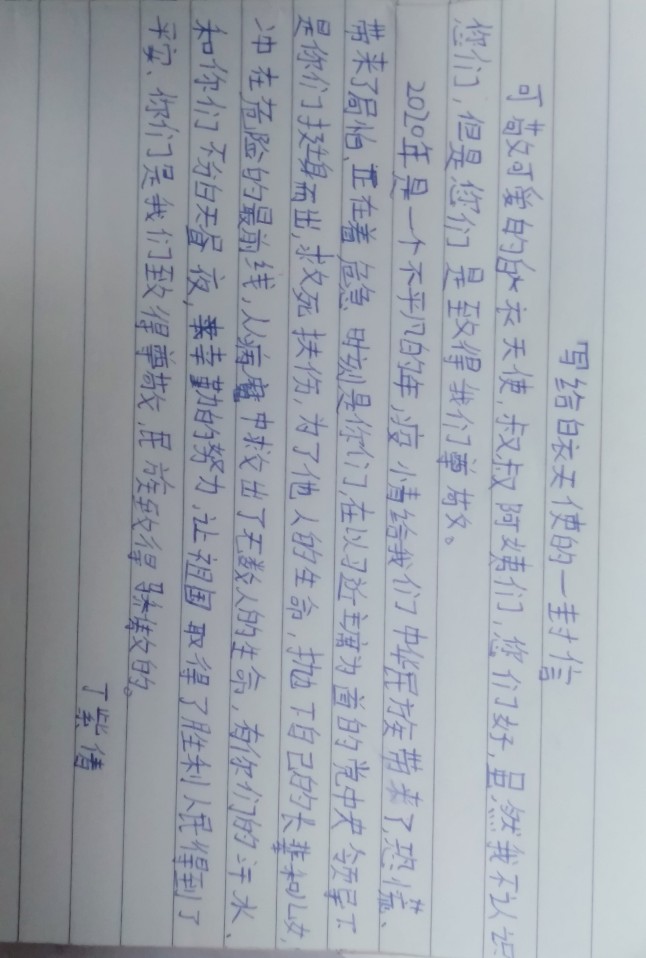 写给白衣天使的一封信
可敬可爱的白衣天使,叔叔阿姨们,您们好,虽然我不认识
您们,但是您们是致得我们尊敬。
2020年是一个不平凡的年,疫情给我们中华民族带来了恐慌、
带来了局怕,正在着危急时刻是你们,在以习近主席为首的党中央领导下
是你们挺身而出,求死扶伤,为了他人的生命,抛下自己的长辈和儿女,
冲在危险的最前线,从病毒中救出了无数人的生命,有你们的汗水、
和你们不分白天昼夜,辛勤的努力,让祖国取得了胜利人民得到了
平安、你们是我们致得尊敬,民族致得骄傲的。
丁紫倩